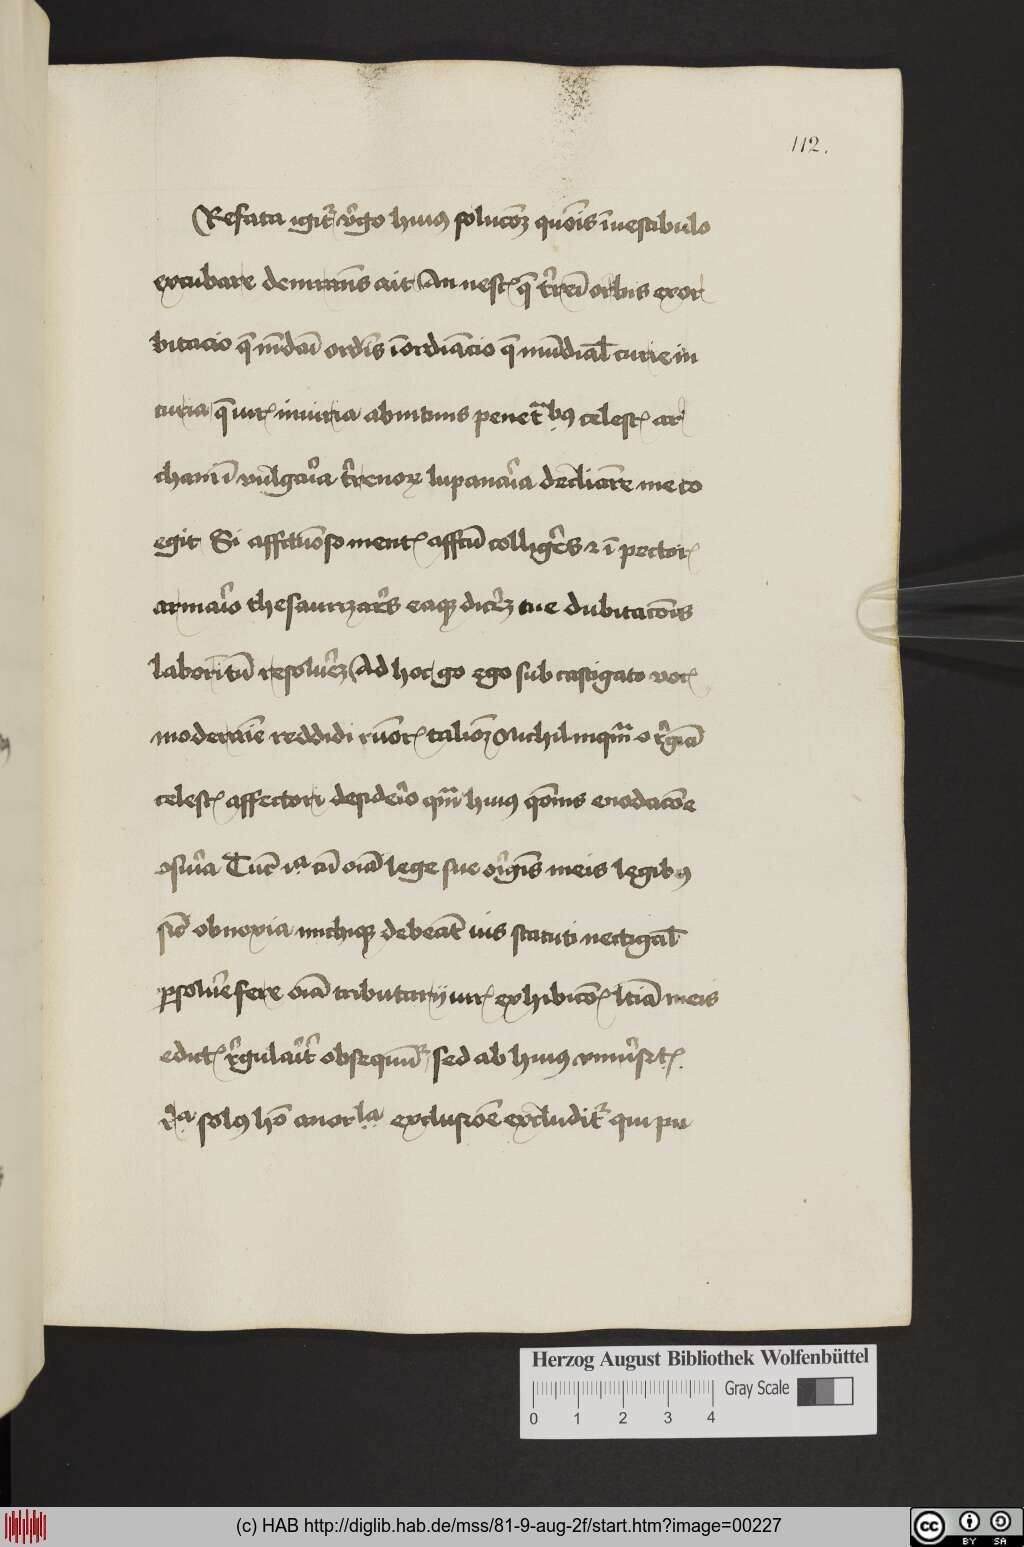 112.
Refata igit̄ v̄go huius soluco͞ꝫ quo͞is ī vestibulo
excubare demira͞ns ait An nesc̄ q̄ t̄rei͞ orbis exor
bitacio q̄ mu͞dai͞ ordi͞s īordia͞cio q̄ mu͞dial̄ curie in
curia q̄ iur̄ iniuria ab intimis penet̄bꝰ celest̄ ar
chani ī vulga͞ia t̄renoꝝ lupana͞ia decliare͞ me co
egit Si affc̄uo͞so ment̄ affc̄u͞ collig͞es ⁊ ī pector̄
arma͞io thesaurizar͞s eaqꝫ dic͞eꝫ tue dubitaco͞is
labori͞tu͞ resolu͞eꝫ Ad hoc go ego sub castigato voc̄
modera͞ie reddidi rn͞sor̄ talio͞ꝫ Nichil inqua͞ o r̄gia͞
celest̄ affectori desideri͞o qua͞ huius qo͞nis enodaco͞e
Tu͞c ia cu͞ oi͞a lege sue ori͞gi͞s meis legibꝰ
sic͞ obnoxia michiqꝫ debea͞t ius statuti vectigal̄
ꝑsolue͞ fere oi͞a tributarij iur̄ exhibico͞ꝫ l͞tia͞ meis
edict̄ r̄gulari͞t obsequu͞t̄ sed ab huius vniu͞s̄t̄
r̄a solꝰ ho͞ anorla exclusio͞e excludit̄ qui pu
Herzog August Bibliothek Wolfenbüttel
Gray Scale
0 1 2 3 4
(c) HAB http://diglib.hab.de/mss/81-9-aug-2f/start.htm?image=00227
cc BY SA